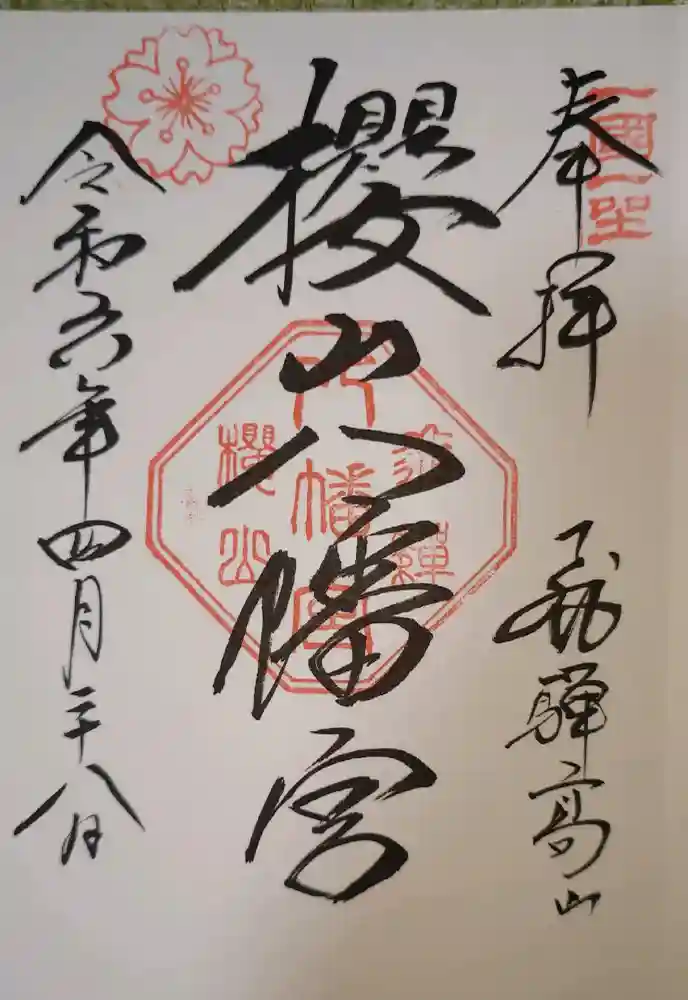 奉拝
飛騨高山
一國一社
櫻山八幡宮
飛騨
八幡宮
櫻山
令和六年四月二十八日